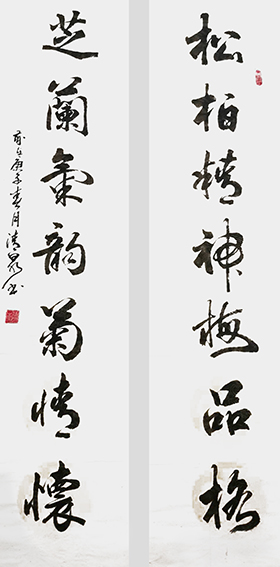 松柏精神梅品格
芝蘭氣韵菊情懷
庚子春月清泉书